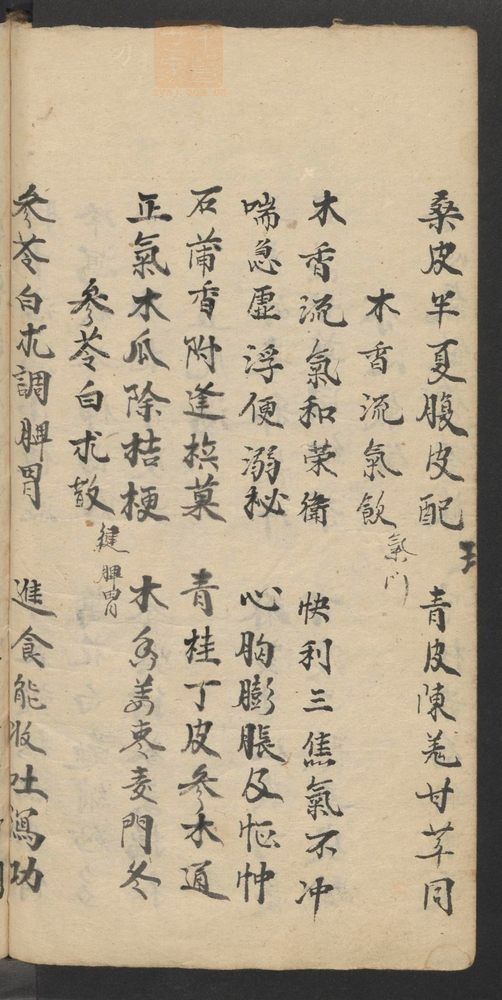 桑皮半夏腹皮配　青皮陳羌甘草同
木香流氣飲　氣门
木香流氣和荣衛　快利三焦氣不冲
喘急虛浮便溺秘　心胸膨脹及怔忡
石蒲香附逢梹菓　青桂丁皮參木通
正氣木瓜除桔梗　木香姜枣麦門冬
參苓白朮散　健脾胃
參苓白朮調脾胃　進食能收吐瀉功